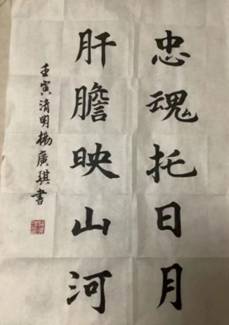 忠魂托日月
肝膽映山河
壬寅清明楊廣琪書